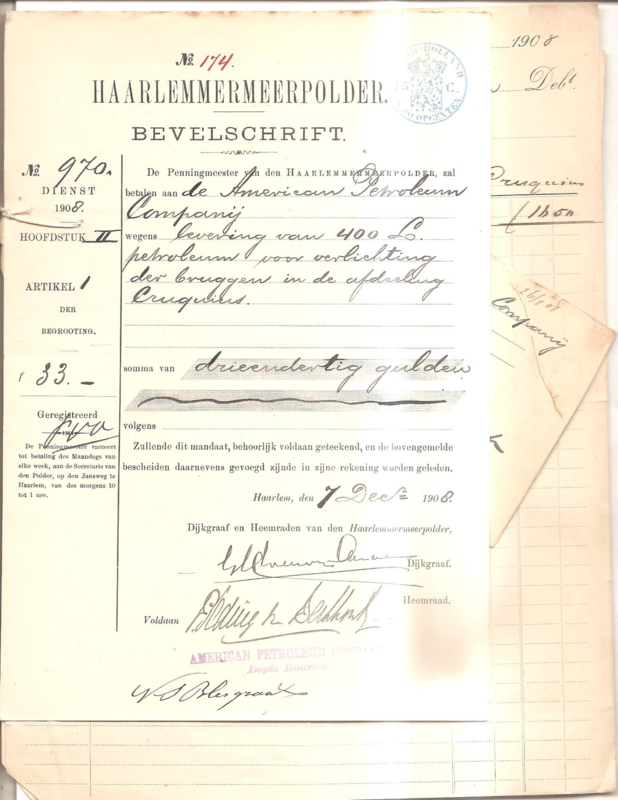 No. 174.
HAARLEMMERMEERPOLDER.
BEVELSCHRIFT.
No. 970.
DIENST
1908.
HOOFDSTUK II
ARTIKEL 1
DER
BEGROOTING.
f 33.-
Geregistreerd
De Penningmeester vaceert
tot betaling des Maandags van
elke week, aan de Secretarie van
den Polder, op den Jansweg te
Haarlem, van des morgens 10
tot 1 ure.
De Penningmeester van den HAARLEMMERMEERPOLDER, zal
betalen aan de American Petroleum
Companij
wegens levering van 400 L.
petroleum voor verlichting
der bruggen in de afdeeling
Cruquius.
somma van drieendertig gulden
volgens
Zullende dit mandaat, behoorlijk voldaan geteekend, en de bovengemelde
bescheiden daarnevens gevoegd zijnde in zijne rekening worden geleden.
Haarlem, den 7 Decr 1908.
Dijkgraaf en Heemraden van den Haarlemmermeerpolder,
Dijkgraaf.
Heemraad.
Voldaan
AMERICAN PETROLEUM COMPAN
Depôt Haarlem
HOLLAND
5 C.
OPCENTEN
1908
Debt.
Cruquius
Companij